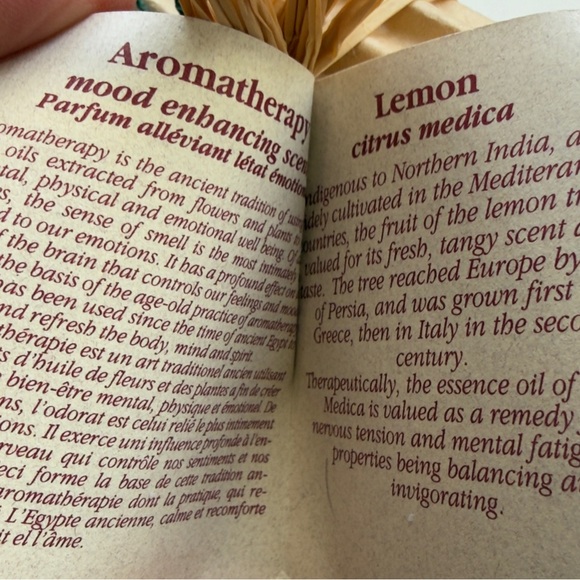 Aromatherapy
mood enhancing
Parfum alléviant létat
is the ancient tradition of
oils extracted from flowers and plants
physical and emotional well being. Of
the sense of smell is the most intimately
to our emotions. It has a profound effect
the brain that controls our feelings and
the basis of the age-old practice of aromatherapy
has been used since the time of ancient Egypt
refresh the body, mind and spirit.
est un art traditionel ancien
d'huile de fleurs et des plantes a fin de créer
bien-être mental, physique et émotionel. De
l'odorat est celui relié le plus intimement
Il exerce uni influence profonde à l'en-
qui contrôle nos sentiments et nos
forme la base de cette tradition an-
dont la pratique, qui re-
L'Egypte ancienne, calme et recomforte
et l'âme.
Lemon
citrus medica
to Northern India,
cultivated in the
the fruit of the lemon
for its fresh, tangy scent
The tree reached Europe by
of Persia, and was grown first
Greece, then in Italy in the
century.
Therapeutically, the essence oil of
Medica is valued as a remedy
nervous tension and mental
properties being balancing
invigorating.